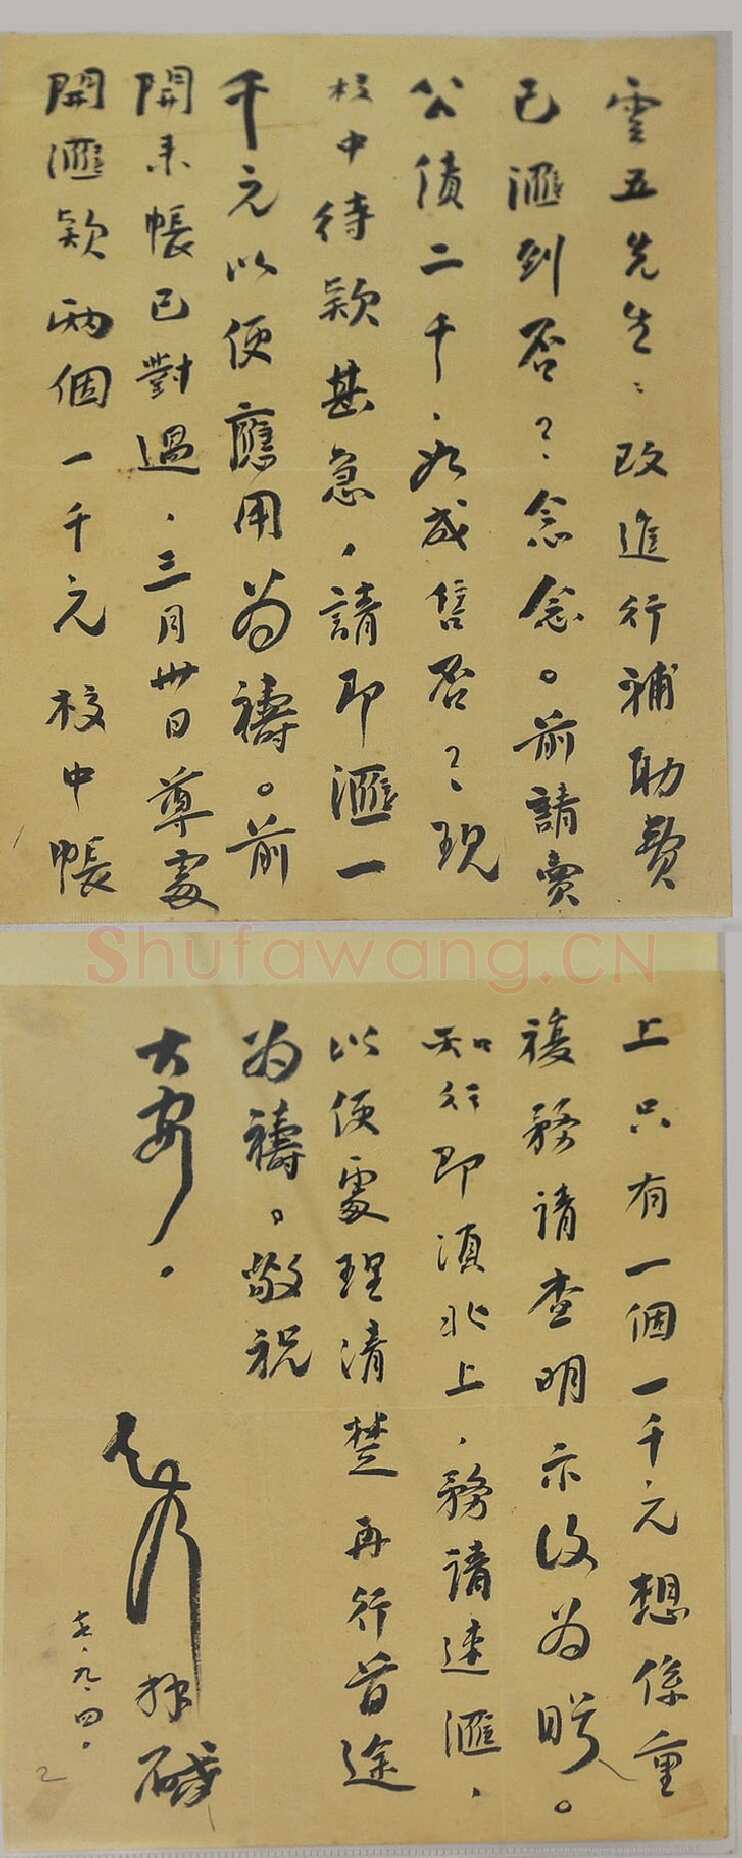 雲五先生：改進行補助費
已滙到否？念念。前請賣
公債二千，如成售否？現
校中待款甚急，請即滙一
千元以便應用為禱。前
開来帳已對過，三月卅日尊處
開滙款兩個一千元校中帳
Shufawang.CN
上只有一個一千元想係重
複務請查明示復为盼。
知行即須北上，務請速滙，
以便處理清楚再行首途
为禱。敬祝
大安。
知行 拜啟
七、九、四。
2